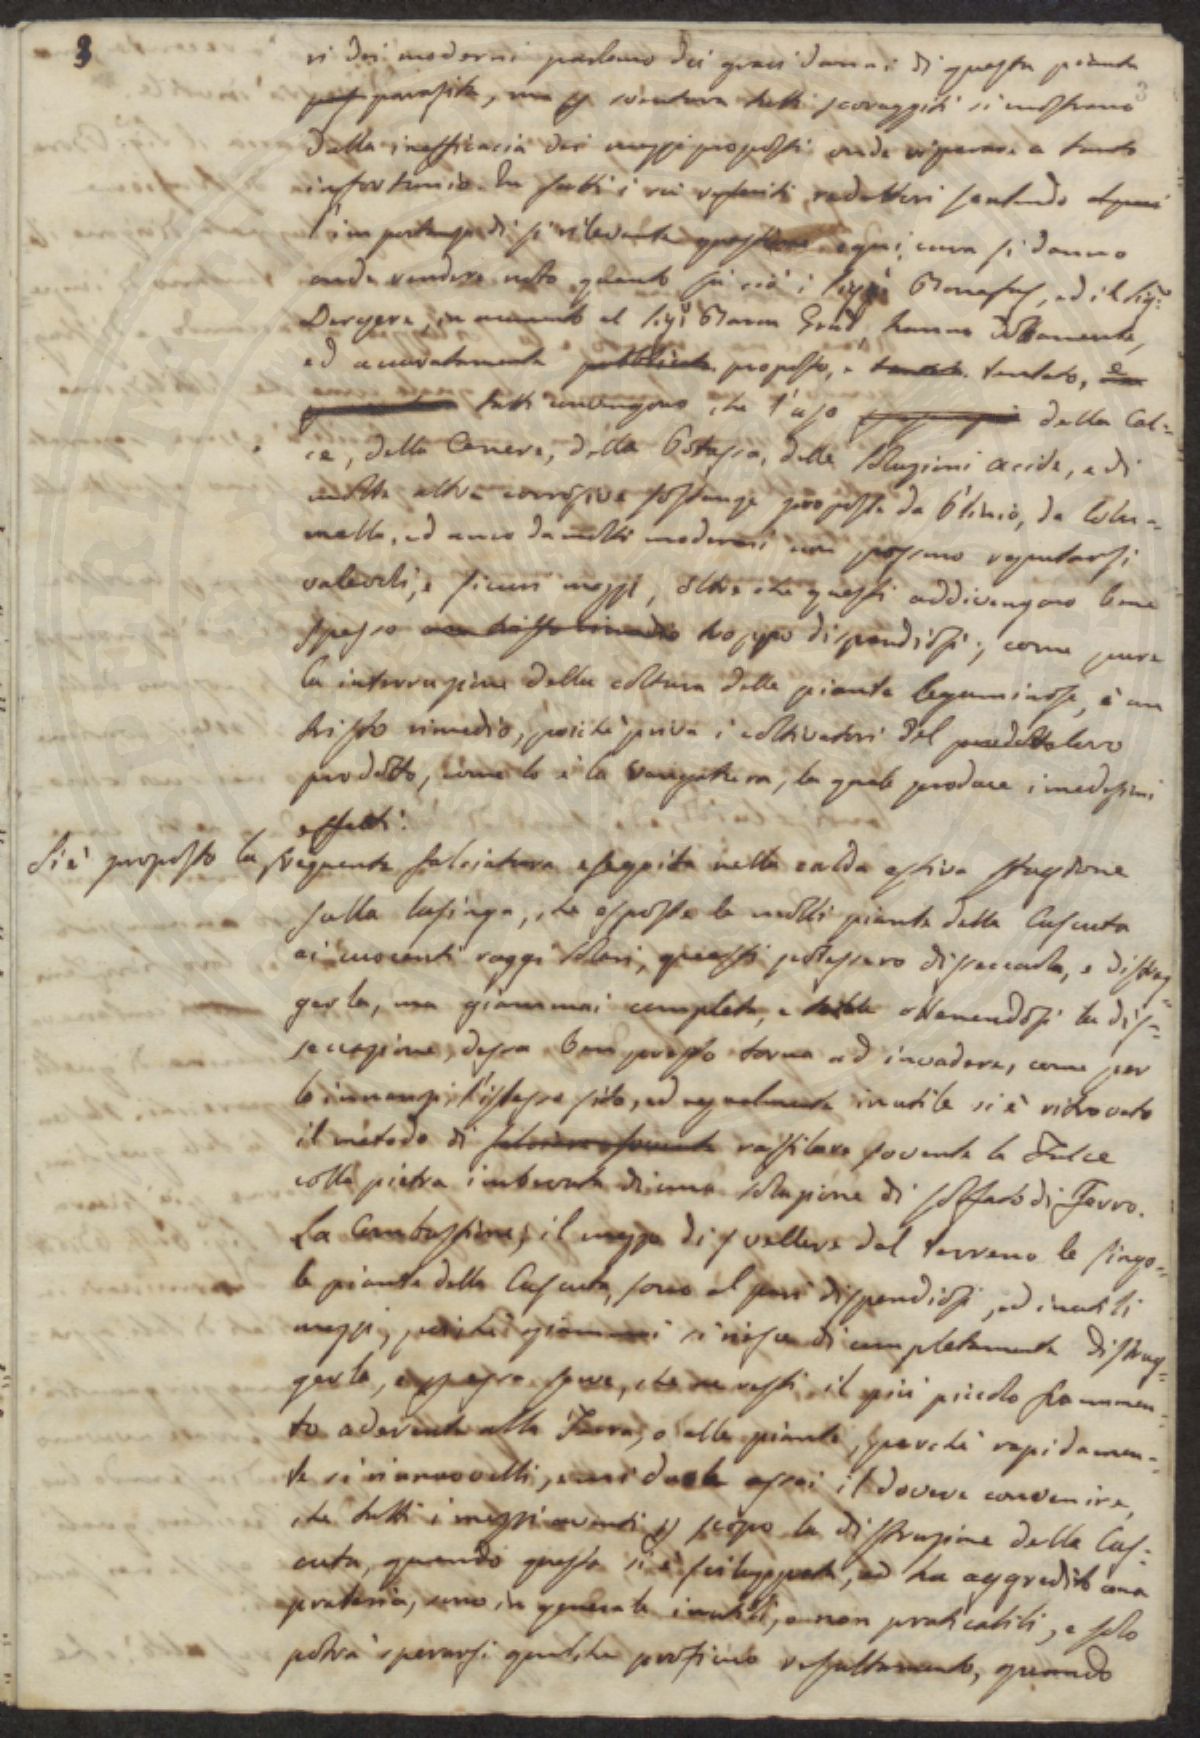 3
ri dei moderni parlano dei gravi danni di questa pianta
parasita, ma p sventura tutti scoraggiti si mostrano
dalla inefficacia dei mezzi proposti onde riparare a tanto
infortunio. In fatti i redattori sentendo
l'importanza di si rilevante questione ogni cura si danno
onde rendere noto quanto su ciò i Sigri ed il Sigr
in al Sigr hanno dottamente,
ed accuratamente pubblicato proposto, e tentato, e
tutti convengono che l'uso della Cal=
ce, della Cenere, della Potassa, delle soluzioni acide, e di
molte altre corrosive sostanze proposte da Plinio, da Colu=
mella, ed anco da molti moderni non possono reputarsi
valevoli, e sicuri mezzi, oltre che questi addivengono bene
spesso un tristo rimedio troppo dispendiosi; come pure
la interruzione della coltura delle piante leguminose, è un
tristo rimedio, poiché priva i coltivatori del predetto loro
prodotto, come lo è la vangatura, la quale produce i medesimi
effetti.
Si è proposto la frequente falciatura eseguita nella calda estiva stagione
sulla lusinga, che esposte le molli piante della Cuscuta
ai cuocenti raggi solari, questi potessero disseccarla, e distrug=
gerla, ma giammai completa, e ottenendosi la dis=
seccazione, dessa ben presto torna ad invadere, come per
lo innanzi l'istesso sito, ed egualmente inutile si è ritrovato
il metodo di falciare sovente raffilare sovente la Falce
colla pietra imbevuta di una soluzione di solfato di Ferro.
La Combustione, il mezzo di svellere dal terreno le singo=
le piante della Cuscuta, sono al pari dispendiosi, ed inutili
mezzi, poiché giammai si riesce di completamente distrug=
gerla, e spesso serve, che ne resti il più piccolo frammen=
to aderente alla Terra, o alle piante, perché rapidamen=
te si rinnuovelli, e mi duole assai il dovere convenire,
che tutti i mezzi aventi p scopo la distruzione della Cus=
cuta, quando questa si è sviluppata, ed ha aggredito una
prateria, sono in generale inutili, e non praticabili, e solo
potrà sperarsi qualche proficuo resultamento, quando